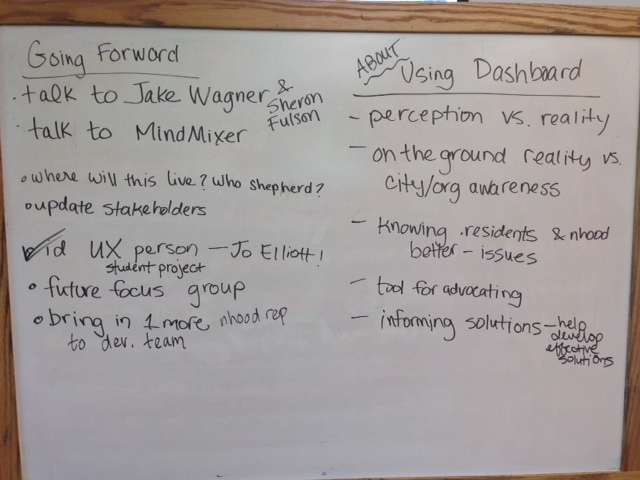 Going Forward
• talk to Jake Wagner &
Sheron
Fulson
• talk to MindMixer
• where will this live? Who shepherd?
• update stakeholders
✓ id UX person – Jo Elliott!
student project
• future focus group
• bring in 1 more nhood rep
to dev. team
ABOUT
Using Dashboard
– perception vs. reality
– on the ground reality vs.
city/org awareness
– Knowing residents & nhood
better – issues
– tool for advocating
– informing solutions – help
develop
effective
solutions